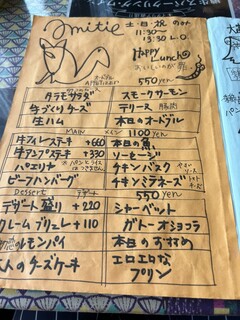 amitie
土・日・祝 のみ
11:30〜
13:30 L.O.
Happy
Lunch
550yen
スモークサーモン
生づくりチーズ
テリーヌ
生ハム
本日のオードブル
MAIN メイン 1100yen
牛フィレステーキ +660
本日の魚
牛ランプステーキ +330
ソーセージ
パエリヤ
チキンバスク
ビーフハンバーグ
チキンミラネーズ
Dessert デザート 550yen
デザート盛り +220
シャーベット
クレームブリュレ +110
ガトーオショコラ
レモンパイ
本日のおすすめ
大人のチーズケーキ
エロエロな
プリン